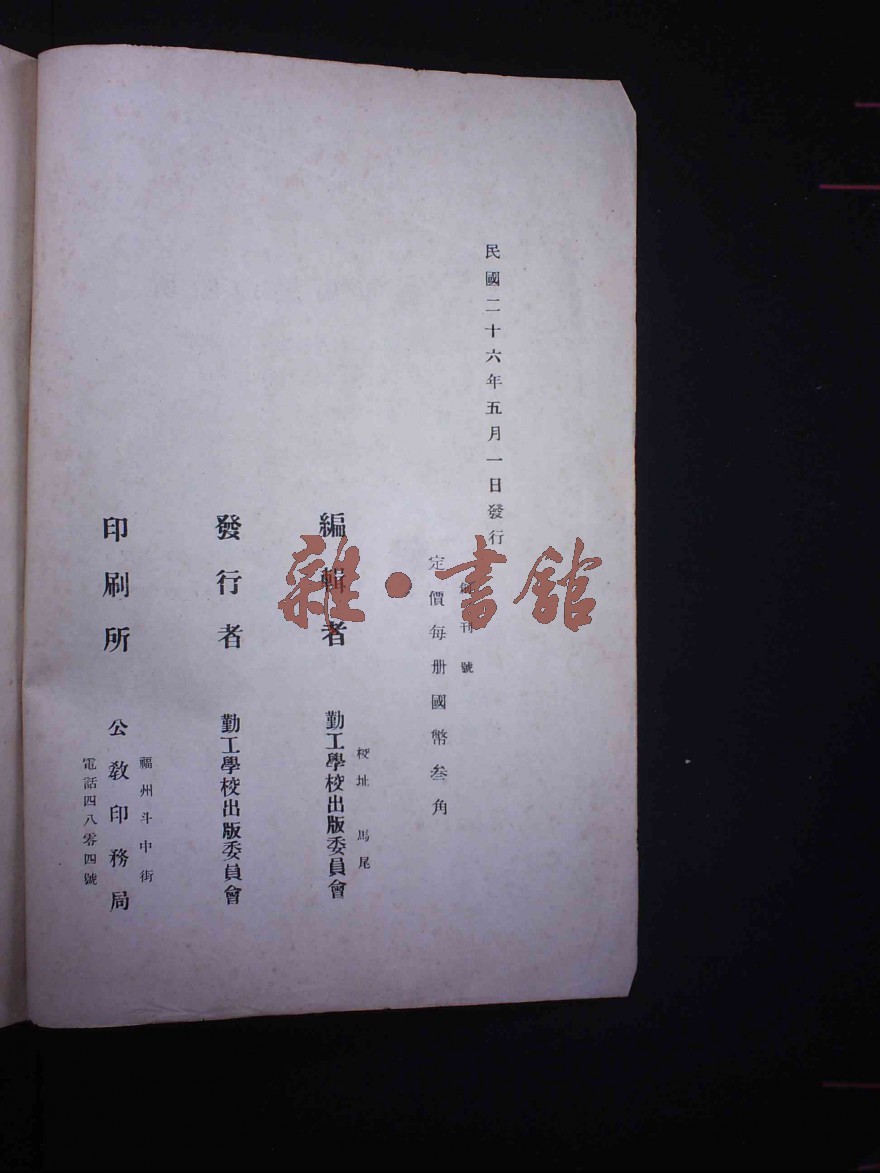 民國二十六年五月一日發行
創刊號
定價每册國幣叁角
編輯者 勤工學校出版委員會
校址 馬尾
發行者 勤工學校出版委員會
印刷所 公教印務局
福州斗中街
電話四八零四號
雜·書館